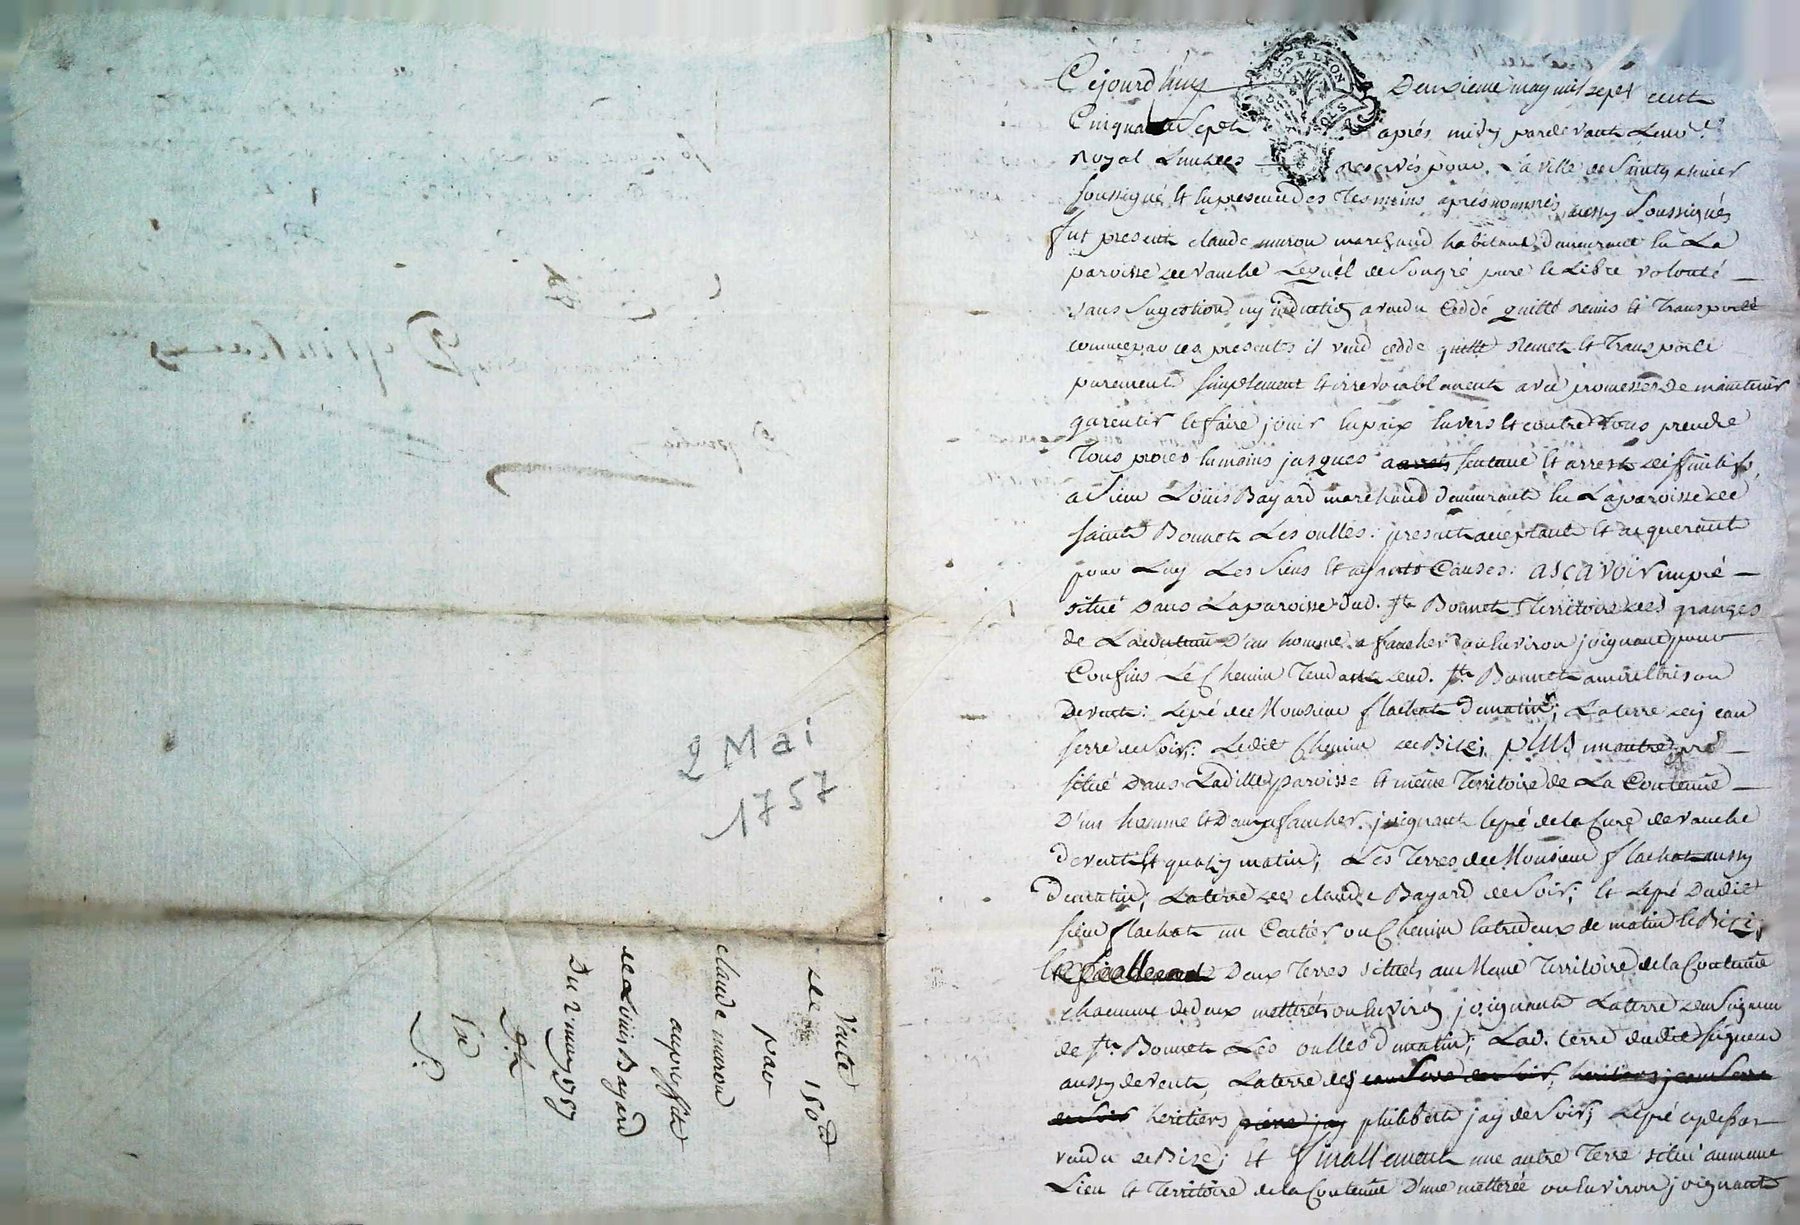 2 Mai
1757
Vente
de 150tt
par
claude muron
au proffit
de Louis Bayard
Du 2 may 1757
Cejourd'huy Deuxieme may mil sept cent
Cinquante Sept aprés midy pardevant Le no.re
Royal reservés pour La ville de Saint galmier
soussigné et en presence des Tesmoins aprés nommés aussy Soussignés
fut present claude muron marchand habitant demeurant en La
paroisse de vauche Lequel de Son gré pure et Libre volonté
sans Sugestion ny induction a vendu Ceddé quitté remis et Transporté
comme par ces presentes il vend cedde quitte Remet et Transporte
purement simplement et irrevocablement avec promesses de maintenir
garentir et faire jouir en paix envers et contre Tous prendre
Tous procés en mains jusques sentence et arrest deffinitifs
a Sieur Louis Bayard marchand demeurant en La paroisse de
saint Bonnet Les oulles: present acceptant et acquerant
pour Luy Les Siens et ayants Causes: ASCAVOIR un pré
situé Dans La paroisse dud. St Bonnet Territoire des granges
de La Contenue D'un homme a faucher ou Environ joignant pour
Confins Le Chemin Tendant dud. St Bonnet a montbrison
de vent: Le pré de Monsieur flachat de matin; La terre de jean
serre de Soir; Ledit Chemin de Bize; PLUS un autre pré
situé Dans Laditte paroisse et même Territoire de La Contenue
D'un homme et Demy a faucher joignant le pré de la Cure de vauche
de vent et quasy matin; Les Terres de Monsieur flachat aussy
de matin; La terre de claude Bayard de Soir; et Le pré Dudit
sieur flachat un Centier ou Chemin entredeux de matin et Bize;
Deux Terres situés au Meme Territoire de la Contenue
chacune de deux metterés ou Environ joignant La terre du Seigneur
de St Bonnet Les oulles de matin; Lad. terre dudit seigneur
aussy de vent, La terre des jean Serre de Soir, heritiers jean Serre
de Soir heritiers pierre jay philibert jay de Soir; Le pré cy dessus
vendu de Bize; et finallement une autre Terre situé au meme
Lieu et Territoire de la Contenue D'une metterée ou Environ joignant